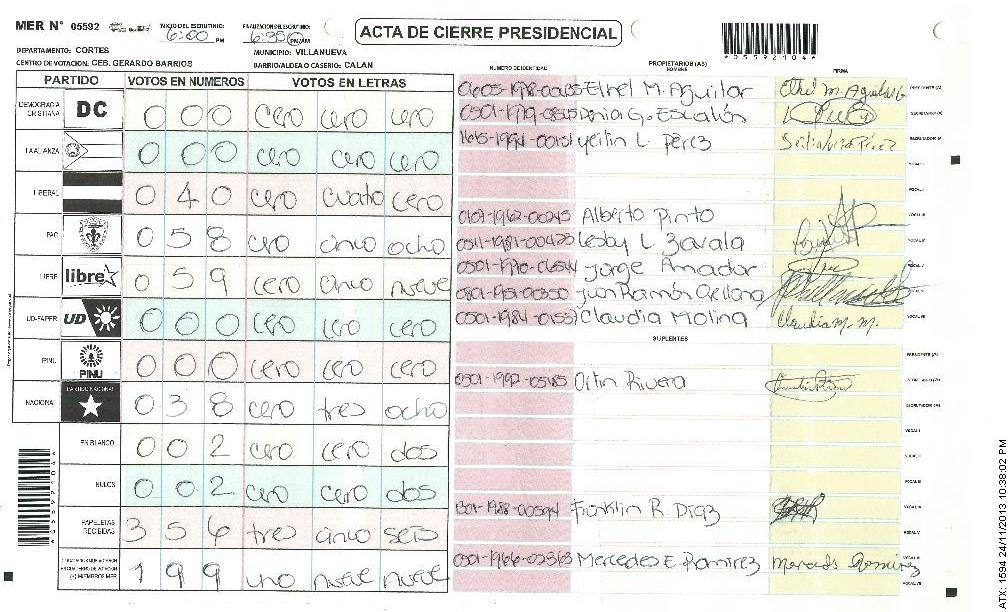 MER N° 05592
INICIO DEL ESCRUTINIO: 6:00 PM
FINALIZACION DEL ESCRUTINIO: 6:35 PM/AM
ACTA DE CIERRE PRESIDENCIAL
*05592104*
DEPARTAMENTO: CORTES
MUNICIPIO: VILLANUEVA
CENTRO DE VOTACION: CEB. GERARDO BARRIOS
BARRIO/ALDEA O CASERIO: CALAN
PARTIDO VOTOS EN NUMEROS VOTOS EN LETRAS
DEMOCRACIA CRISTIANA DC 0 0 0 cero cero cero
LA ALIANZA 0 0 0 cero cero cero
LIBERAL 0 4 0 cero cuatro cero
PAC 0 5 8 cero cinco ocho
LIBRE libre 0 5 9 cero cinco nueve
UD-FAPER UD 0 0 0 cero cero cero
PINU PINU 0 0 0 cero cero cero
NACIONAL PARTIDO NACIONAL 0 3 8 cero tres ocho
EN BLANCO 0 0 2 cero cero dos
NULOS 0 0 2 cero cero dos
PAPELETAS RECIBIDAS 3 5 6 tres cinco seis
(+) MIEMBROS MER 1 9 9 uno nueve nueve
NUMERO DE IDENTIDAD PROPIETARIOS (AS) NOMBRE FIRMA
Ethel M. Aguilar PRESIDENTE (A)
Denia G. Escalón SECRETARIO (A)
Yeilin L. Pérez ESCRUTADOR (A)
VOCAL I
VOCAL II
0107-1962-00245 Alberto Pinto VOCAL III
0511-1981-00423 Lesby L Zavala VOCAL IV
Jorge Amador VOCAL V
0801-1951-00350 Juan Ramón Orellana
0501-1984-01537 Claudia Molina Claudia M. M. VOCAL VII
SUPLENTES
PRESIDENTE (A)
0501-1992-05485 Ortin Rivera SECRETARIO (A)
ESCRUTADOR (A)
VOCAL I
VOCAL II
VOCAL III
Franklin R. Diaz VOCAL IV
VOCAL V
0501-1966-02363 Mercedes E. Ramirez Mercedes Ramirez
VOCAL VII
ATX: 1594 24/11/2013 10:38:02 PM